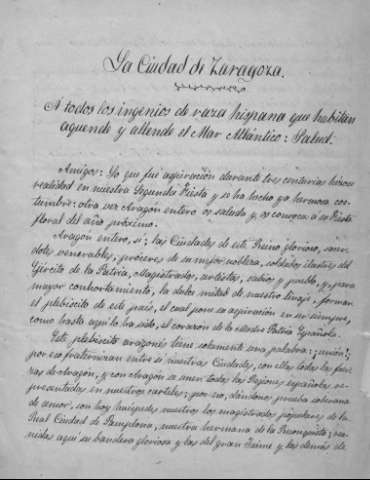 La Ciudad de Zaragoza.
A todos los ingenios de raza hispana que habitan
aquende y allende el Mar Atlántico: Salud.
Amigos: Lo que fué aspiración durante tres centurias hízose
realidad en nuestra Segunda Fiesta y se ha hecho ya hermosa cos-
tumbre: otra vez Aragón entero os saluda y os convoca á su Fiesta
floral del año próximo.
Aragón entero, sí; las Ciudades de este Reino glorioso, sacer-
dotes venerables, próceres de la mejor nobleza, soldados ilustres del
Ejército de la Patria, Magistrados, artistas, sabios y pueblo, y para
mayor confortamiento, la dulce mitad de nuestro linaje, forman
el plebiscito de este país, el cual pone su aspiración en ser siempre,
como hasta aquí lo ha sido, el corazón de la Madre Patria Española.
Este plebiscito aragonés tiene solamente una palabra: ¡unión!;
por eso fraternizan entre sí nuestras Ciudades, con ellas todas las
de Aragón, y con Aragón se unen todas las Regiones españolas re-
presentadas en nuestros carteles; por eso, dándonos prueba soberana
de amor, son hoy huéspedes nuestros los magistrados populares de la
Real Ciudad de Pamplona, nuestra hermana de la Reconquista;
nidas aquí su bandera gloriosa y las del gran Jaime y las demás de